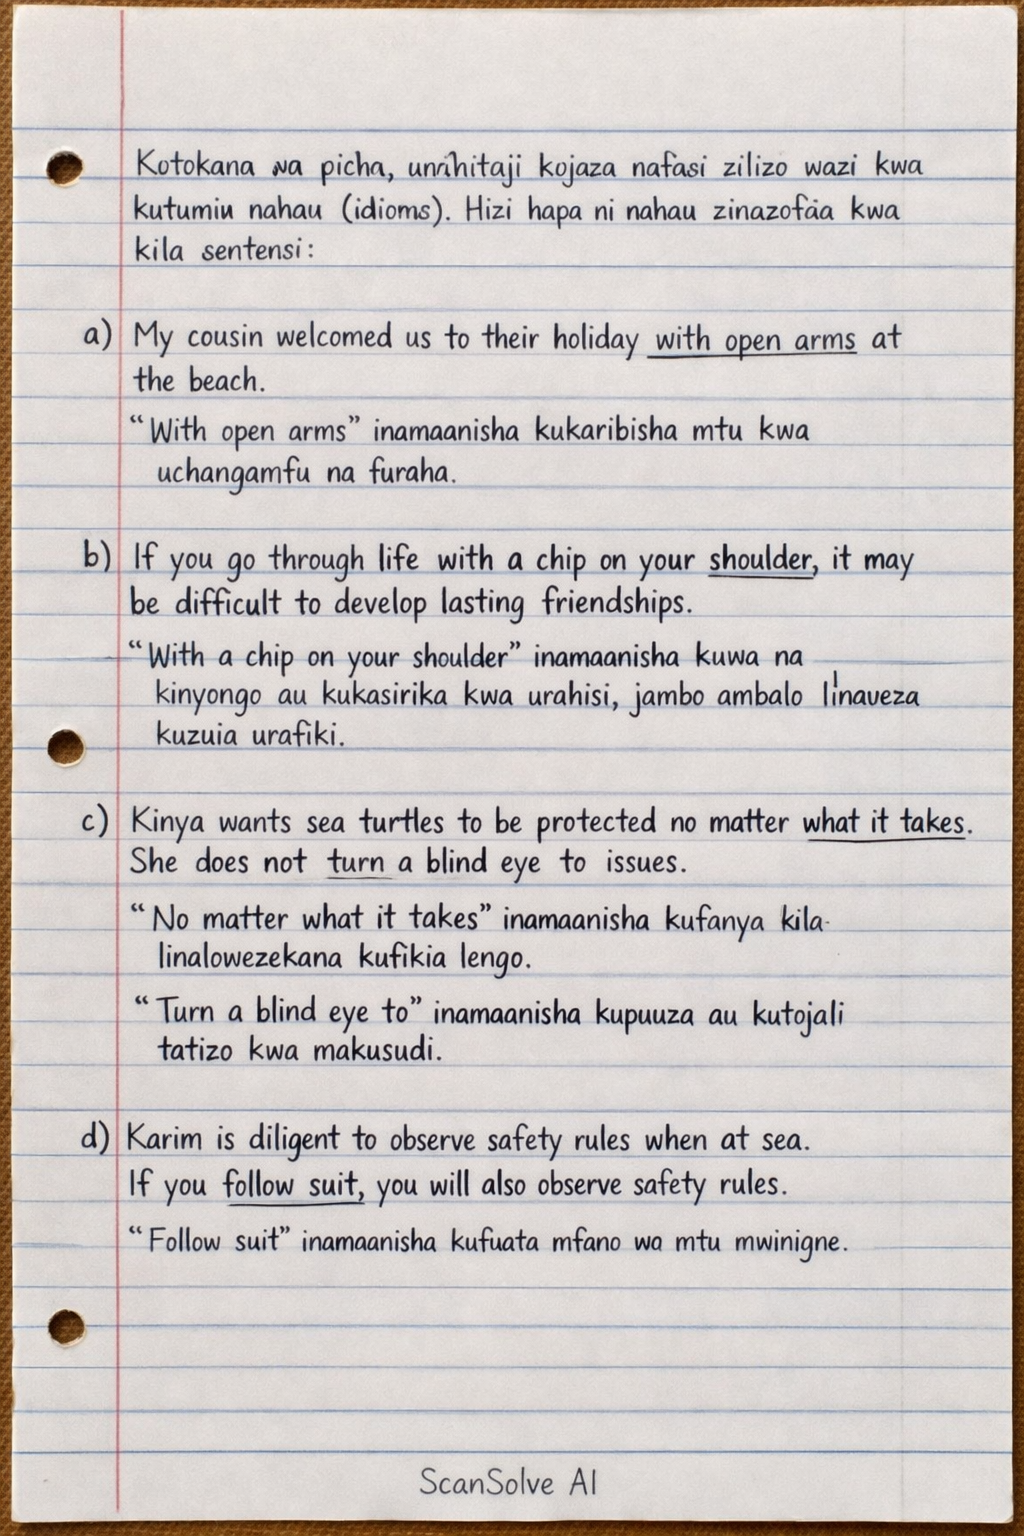 Kotokana na picha, unahitaji kojaza nafasi zilizo wazi kwa
kutumiu nahau (idioms). Hizi hapa ni nahau zinazofaa kwa
kila sentensi:
a) My cousin welcomed us to their holiday with open arms at
the beach.
“With open arms” inamaanisha kukaribisha mtu kwa
uchangamfu na furaha.
b) If you go through life with a chip on your shoulder, it may
be difficult to develop lasting friendships.
“With a chip on your shoulder” inamaanisha kuwa na
kinyongo au kukasirika kwa urahisi, jambo ambalo linaveza
kuzuia urafiki.
c) Kinya wants sea turtles to be protected no matter what it takes.
She does not turn a blind eye to issues.
“No matter what it takes” inamaanisha kufanya kila
linalowezekana kufikia lengo.
“Turn a blind eye to” inamaanisha kupuuza au kutojali
tatizo kwa makusudi.
d) Karim is diligent to observe safety rules when at sea.
If you follow suit, you will also observe safety rules.
“Follow suit” inamaanisha kufuata mfano wa mtu mwinigne.
ScanSolve AI